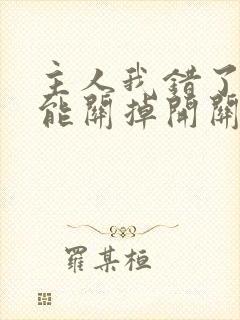 主人我錯了
能關掉開關
羅某桓